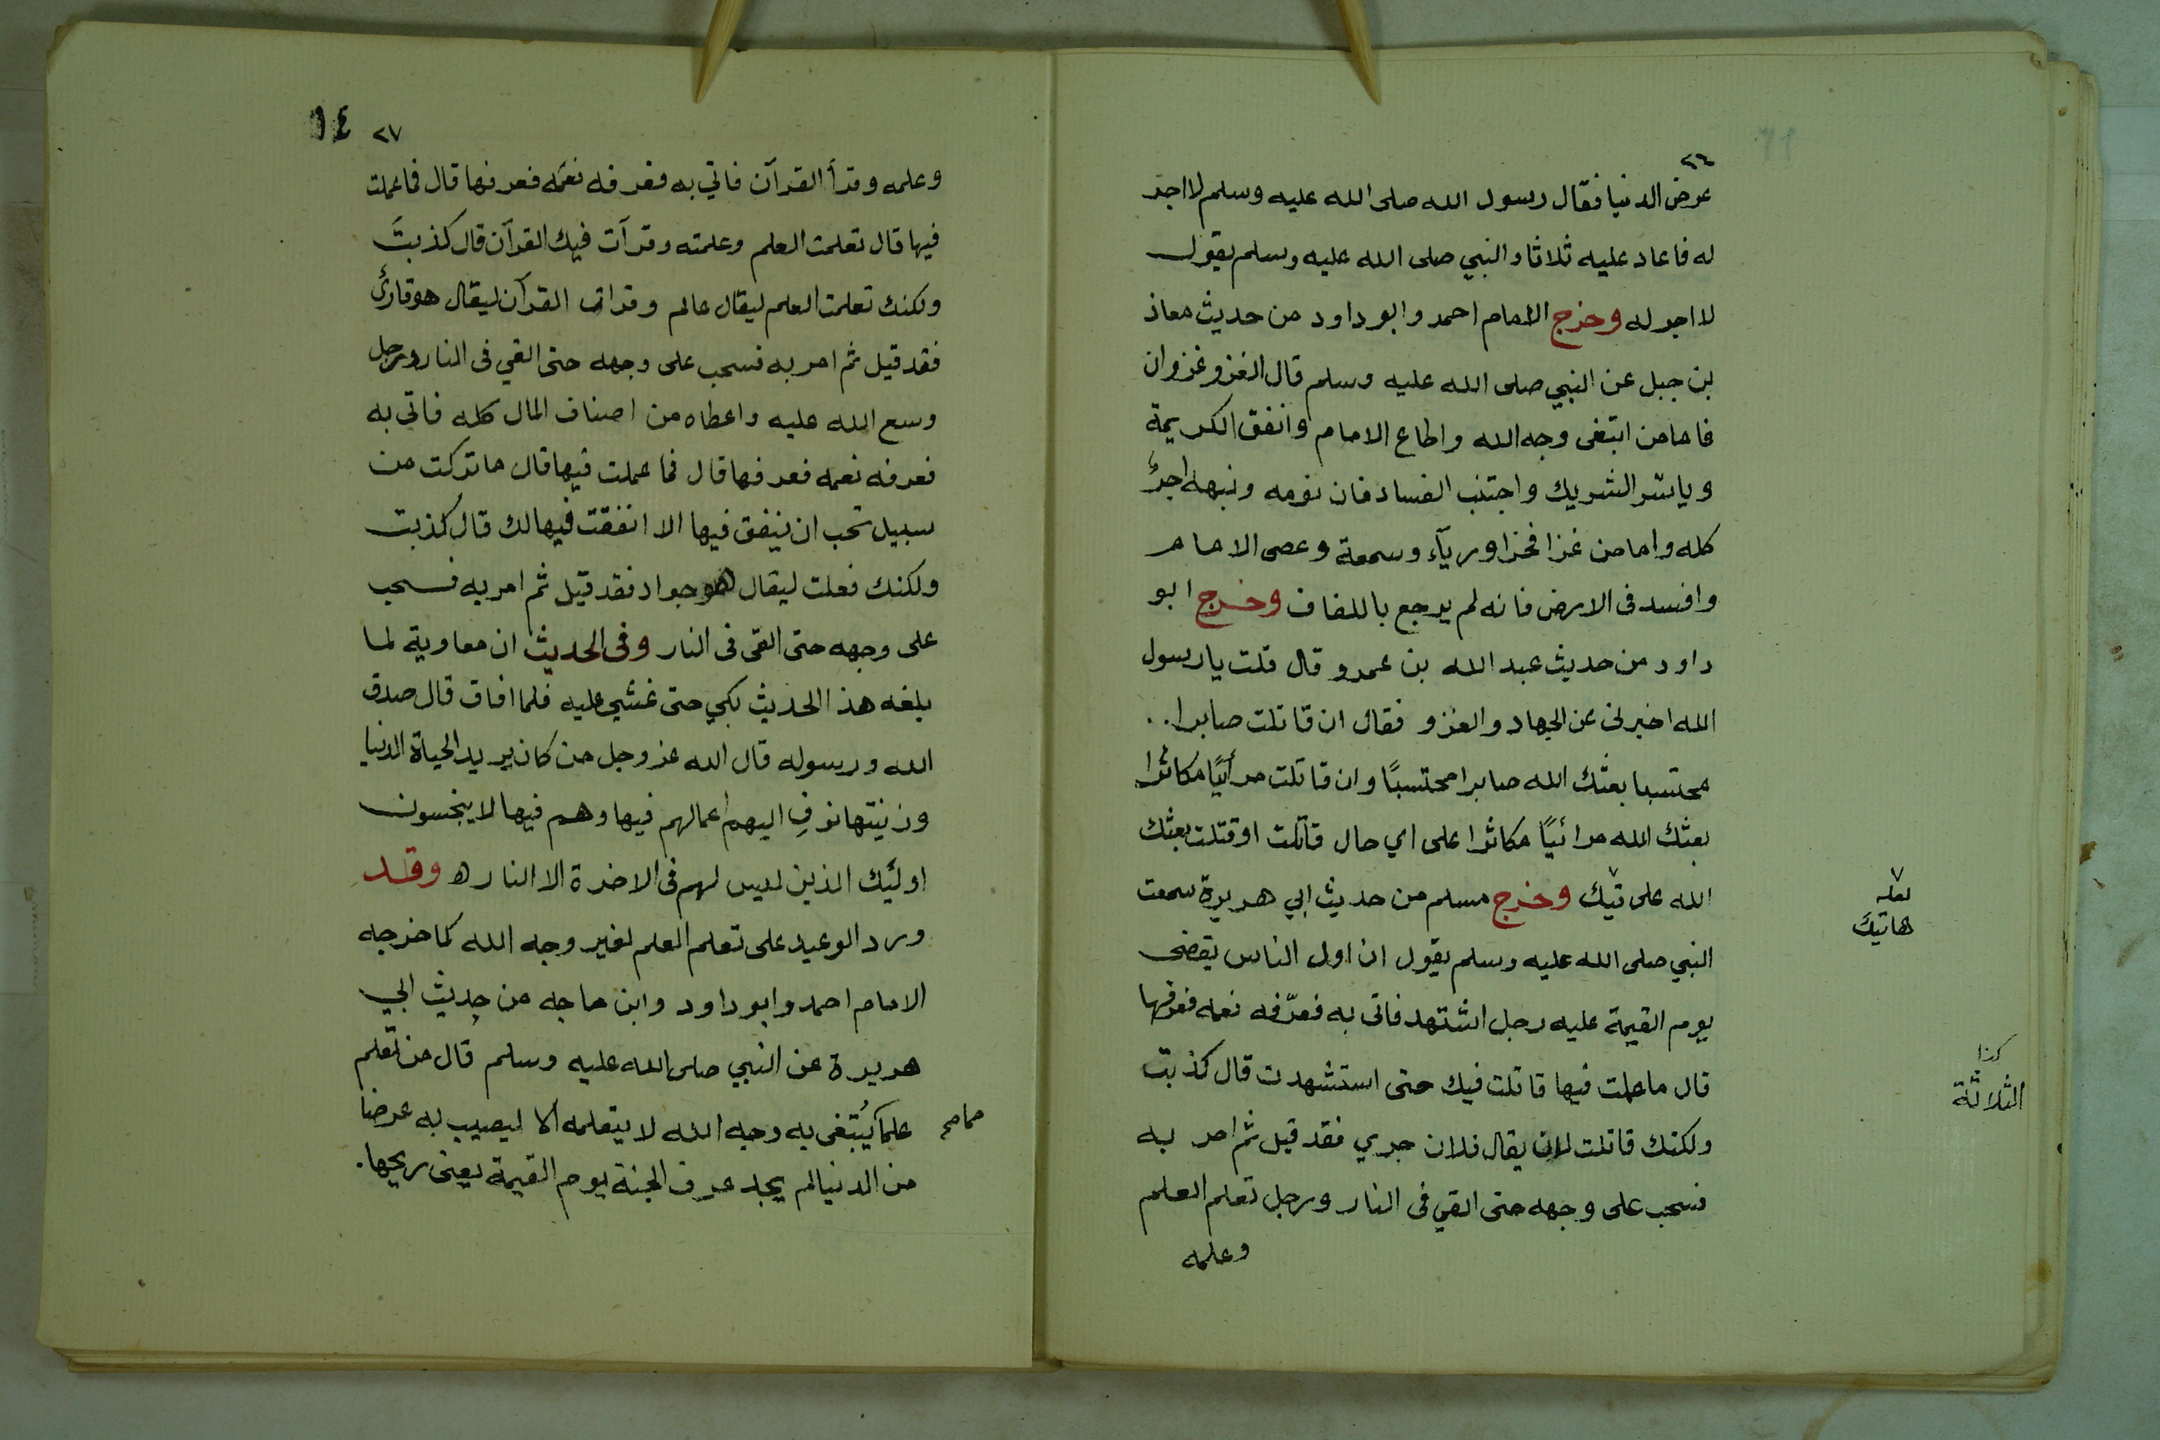 ٢٦
عرض الدنيا فقال رسول الله صلى الله عليه وسلم لا اجر
له فاعاد عليه ثلاثا والنبي صلى الله عليه وسلم يقول
لا اجر له وخرج الامام احمد وابو داود من حديث معاذ
بن جبل عن النبي صلى الله عليه وسلم قال الغزو غزوان
فاما من ابتغى وجه الله واطاع الامام وانفق الكريمة
وياسر الشريك واجتنب الفساد فان نومه ونبهه اجرٌ
كله واما من غزا فخرا وريآء وسمعة وعصى الامام
وافسد فى الارض فانه لم يرجع بالكفاف وخرج ابو
داود من حديث عبد الله بن عمرو قال قلت يا رسول
الله اخبرنى عن الجهاد والغزو فقال ان قاتلت صابرا ..
محتسبا بعثك الله صابرا محتسبًا وان قاتلت مرأيًا مكاثرا
بعثك الله مرائيًا مكاثرا على اي حال قاتلت او قتلت بعثك
الله على تيك وخرج مسلم من حديث ابي هريرة سمعت
النبي صلى الله عليه وسلم يقول ان اول الناس يقضى
يوم القيمة عليه رجل اشتهد فاتى به فعرّفه نعمه فعرفها
قال ما عملت فيها قاتلت فيك حتى استشهدت قال كذبت
ولكنك قاتلت لان يقال فلان جري فقد قيل ثم امر به
فسحب على وجهه حتى القي فى النار ورجل تعلم العلم
وعلمه
٧
لعله
هاتيك
كذا
الثلاثة
٢٧ ١٤
وعلمه وقرأ القرآن فاتي به فعرفه نعمه فعرفها قال فما عملت
فيها قال تعلمت العلم وعلمته وقرآت فيك القرآن قال كذبتَ
ولكنك تعلمت العلم ليقال عالم وقرات القرآن ليقال هو قارئ
فقد قيل ثم امر به فسحب على وجهه حتى القي فى النار ورجل
وسع الله عليه واعطاه من اصناف المال كله فاتى به
فعرفه نعمه فعرفها قال فما عملت فيها قال ما تركت من
سبيل تحب ان ينفق فيها الا انفقت فيها لك قال كذبت
ولكنك فعلت ليقال هو جواد فقد قيل ثم امر به فسحب
على وجهه حتى القى فى النار وفى الحديث ان معاوية لما
بلغه هذ الحديث بكي حتى غشي عليه فلما افاق قال صدق
الله ورسوله قال الله عز وجل من كان يريد الحياة الدنيا
وزينتها نوفِ اليهم اعمالهم فيها وهم فيها لا يبخسون
اولئيك الذين ليس لهم فى الاخرة الا النار ه وقد
ورد الوعيد على تعلم العلم لغير وجه الله كما خرجه
الامام احمد وابو داود وابن ماجه من حديث ابي
هريرة عن النبي صلى الله عليه وسلم قال من تعلم
علما يُبتغى به وجه الله لا يتعلمه الا ليصيب به عرضا
من الدنيا لم يجد عرف الجنة يوم القيمة يعنى ريحها.